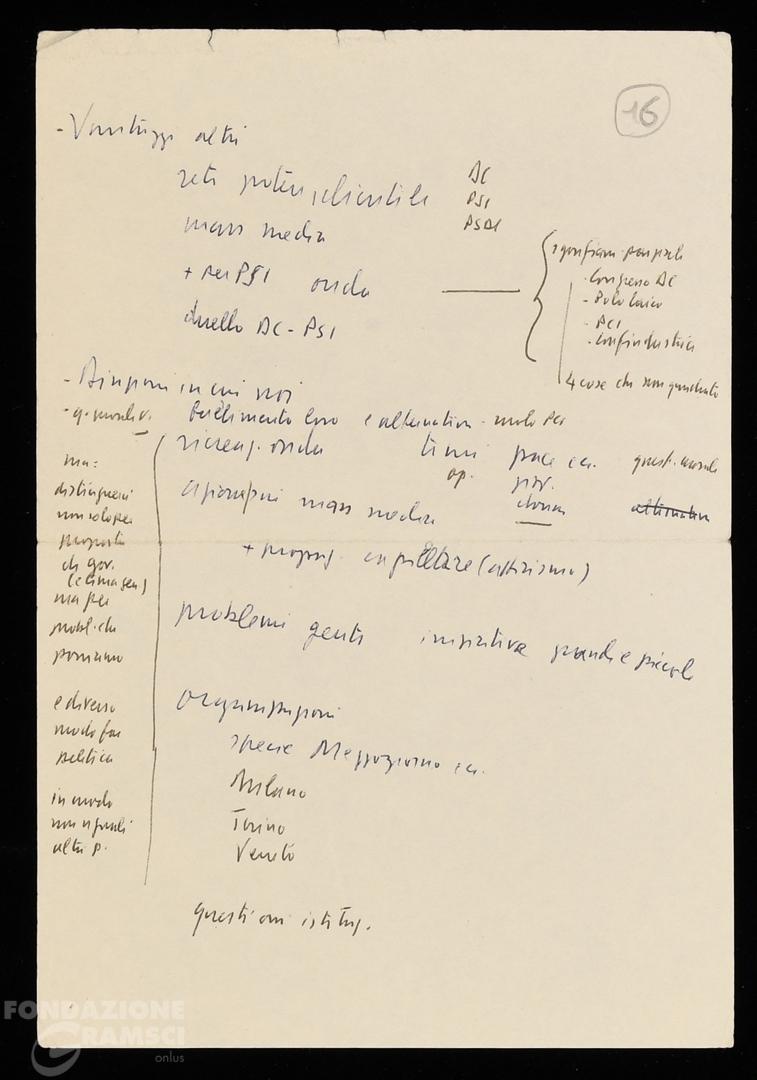 16
- Vantaggi altri
reti poter, clientele
DC
PSI
PSDI
mass media
+ per PSI onda
duello DC - PSI
sgonfiare
- Congresso DC
- Polo laico
- PCI
- Confindustria
4 cose che non quadrano
- in cui noi
- q. morale
fallimento loro e alternativa - ruolo PCI
onda
temi pace ec. quest. morale
op. gov. donne alternativa
mass media
+ propag. capillare (attivismo)
problemi gente iniziative grandi e piccole
organizzazioni
specie Mezzogiorno ec.
Milano
Torino
Veneto
questioni istituz.
ma:
distinguersi
non solo per
proposta
di gov.
ma per
probl. che
poniamo
e diverso
modo far
politica
in modo
non eguali
altri p.
FONDAZIONE
GRAMSCI
onlus